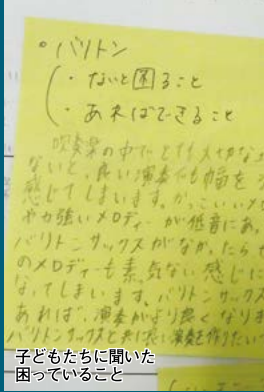 ・バリトン
・ないと困ること
・あればできること
吹奏楽の中でとても大切な
ないと、良い演奏でも幅を
感じてしまいます。かっこいいメ
や力強いメロディーが低音にあ
バリトンサックスがなかったらせ
のメロディーも素気ない感じに
なってしまいます。バリトンサックス
あれば、演奏がより良くなりま
演奏を作りたい
子どもたちに聞いた
困っていること